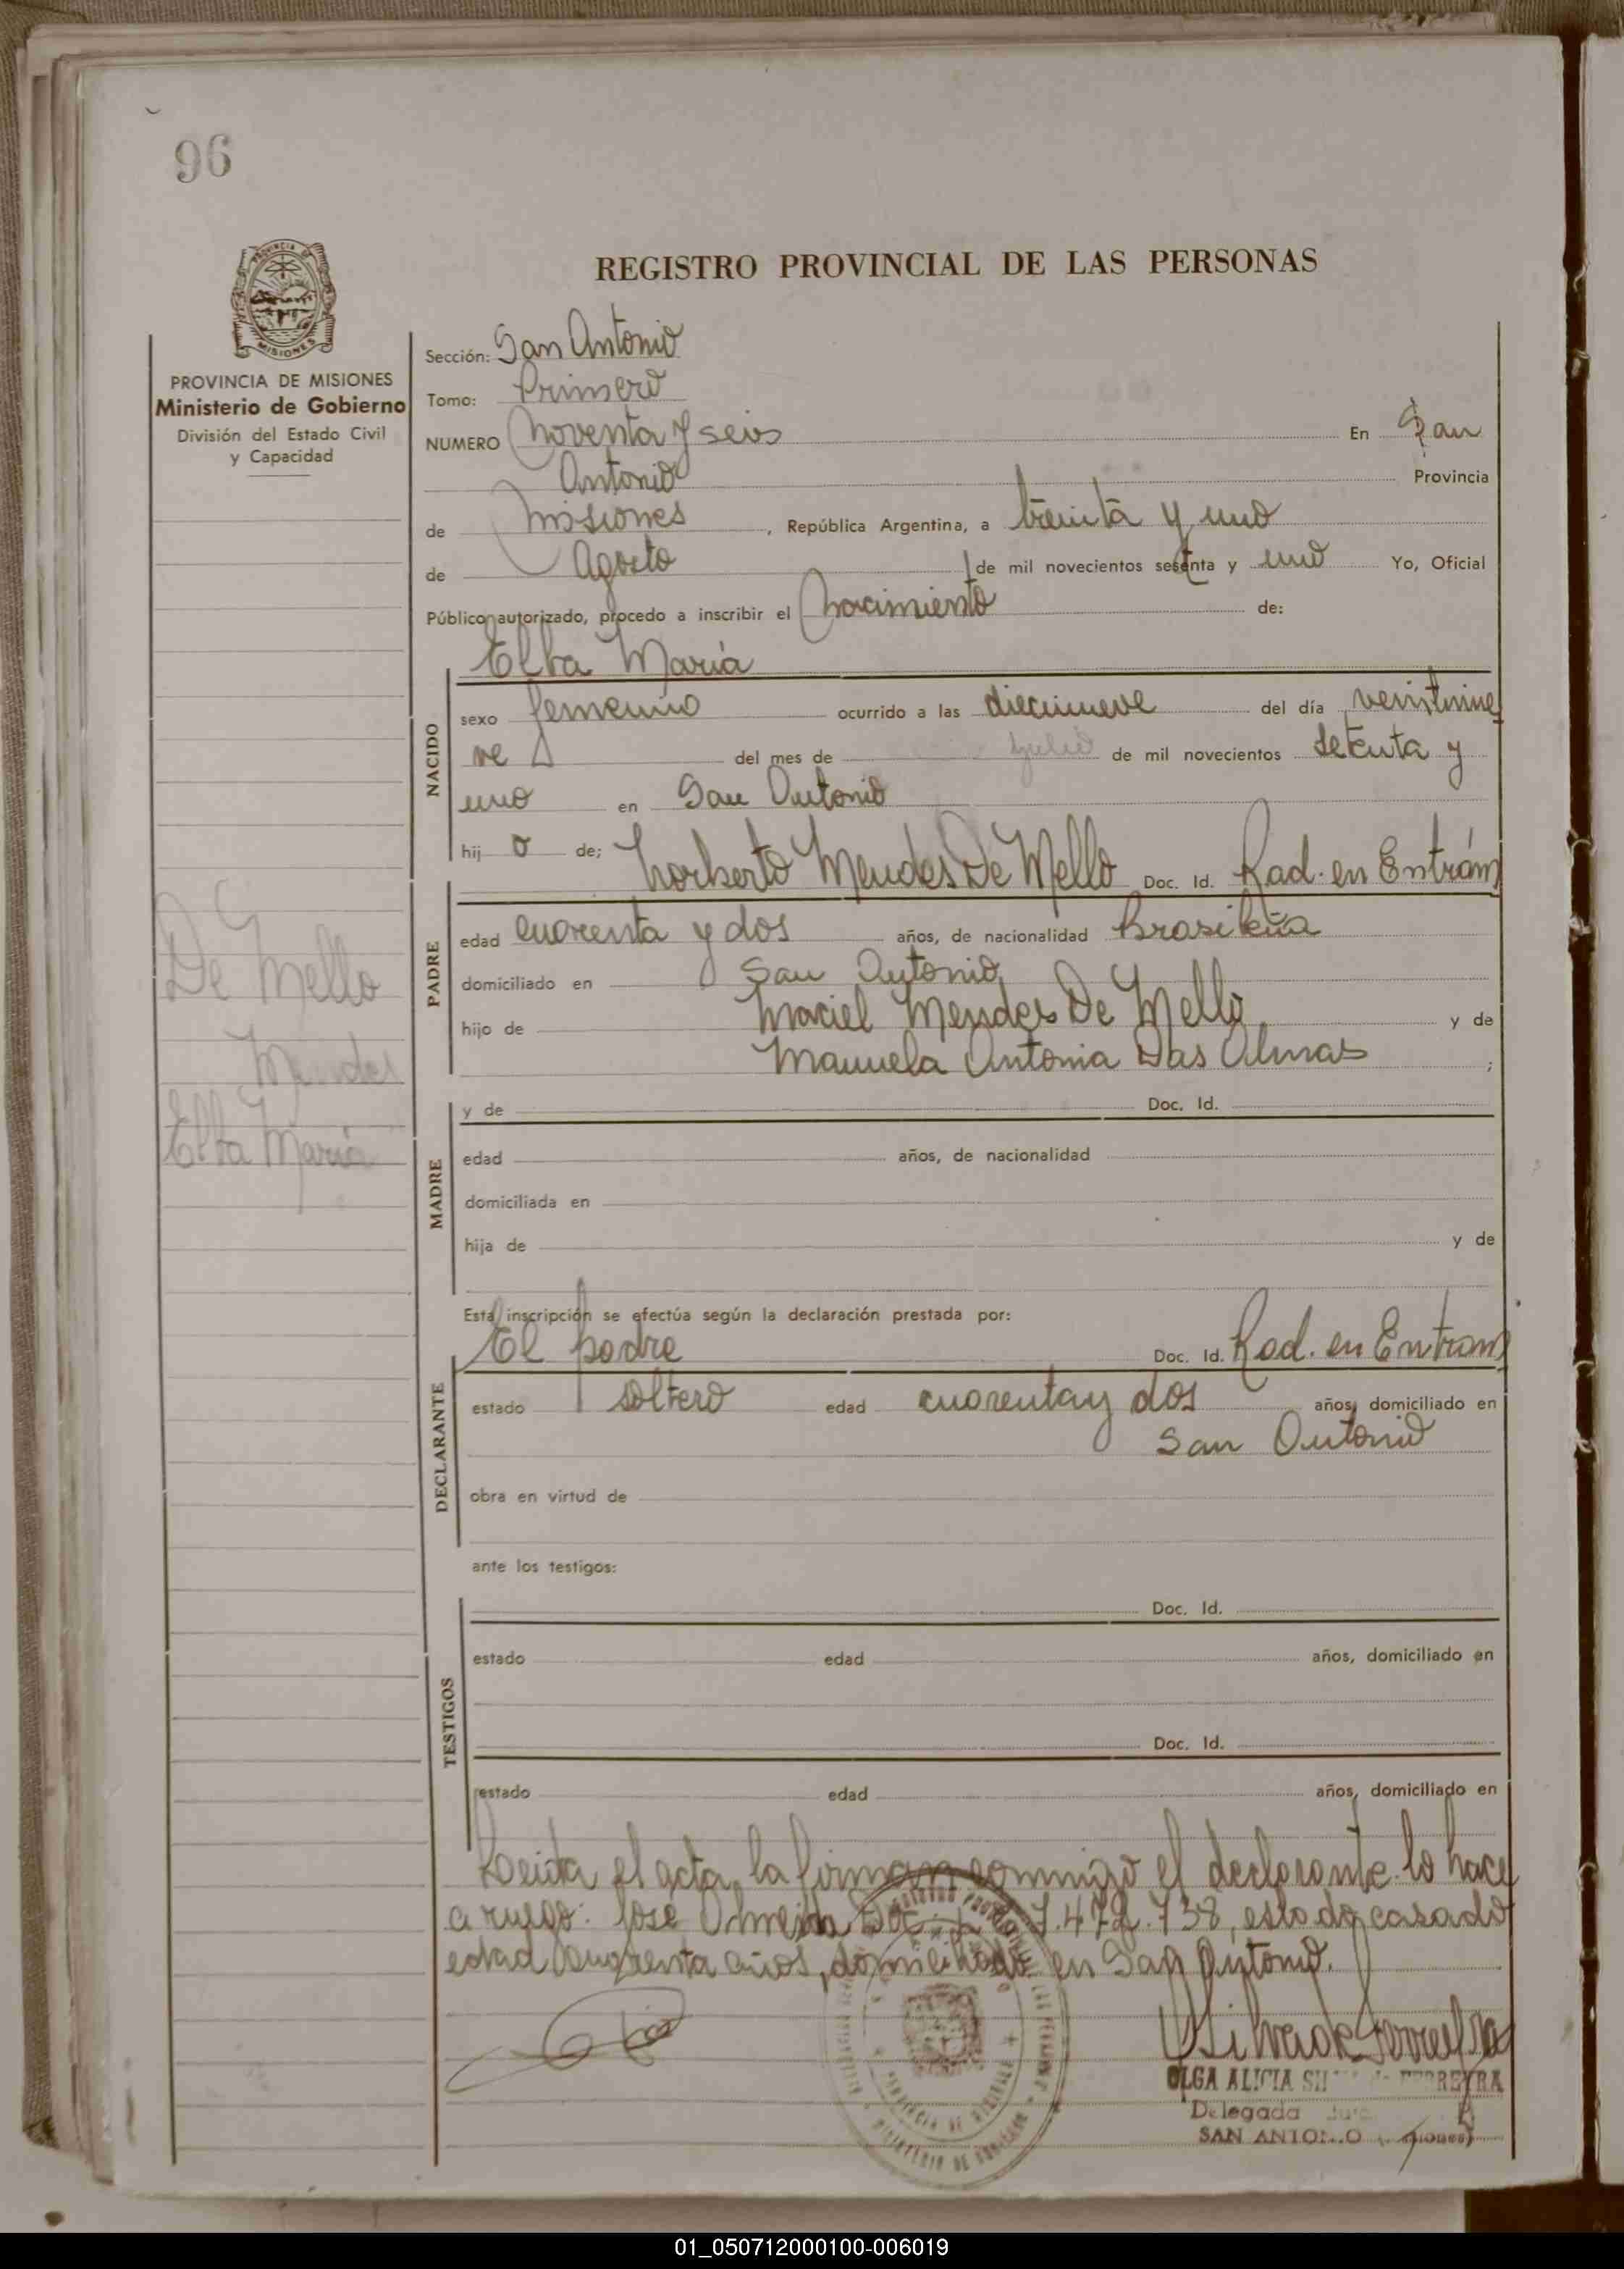 96
REGISTRO PROVINCIAL DE LAS PERSONAS
PROVINCIA DE MISIONES
Ministerio de Gobierno
División del Estado Civil
y Capacidad
Sección: San Antonio
Tomo: Primero
NUMERO Noventa y seis En San
Antonio Provincia
de Misiones, República Argentina, a treinta y uno
de Agosto de mil novecientos setenta y uno Yo, Oficial
Público autorizado, procedo a inscribir el Nacimiento de:
Elba María
NACIDO
sexo femenino ocurrido a las diecinueve del día veintinue
ve del mes de Julio de mil novecientos setenta y
uno en San Antonio
hij o de; Norberto Mendes De Mello Doc. Id. Rad. en Entrám
PADRE
edad cuarenta y dos años, de nacionalidad Brasileña
domiciliado en San Antonio
hijo de Maciel Mendes De Mello y de
Manuela Antonia Das Almas ;
De Mello
Mendes
Elba María
MADRE
y de Doc. Id.
edad años, de nacionalidad
domiciliada en
hija de y de
DECLARANTE
Esta inscripción se efectúa según la declaración prestada por:
El padre Doc. Id. Rad. en Entram
estado soltero edad cuarenta y dos años, domiciliado en
San Antonio
obra en virtud de
ante los testigos:
TESTIGOS
Doc. Id.
estado edad años, domiciliado en
Doc. Id.
estado edad años, domiciliado en
Leída el acta, la firman conmigo el declarante lo hace
a ruego: José Doc. 7.472.738, estado casado
edad cuarenta años, domiciliado en San Antonio.
OLGA ALICIA SIL FERREYRA
Delegada
SAN ANTONIO (Misiones)
01_050712000100-006019